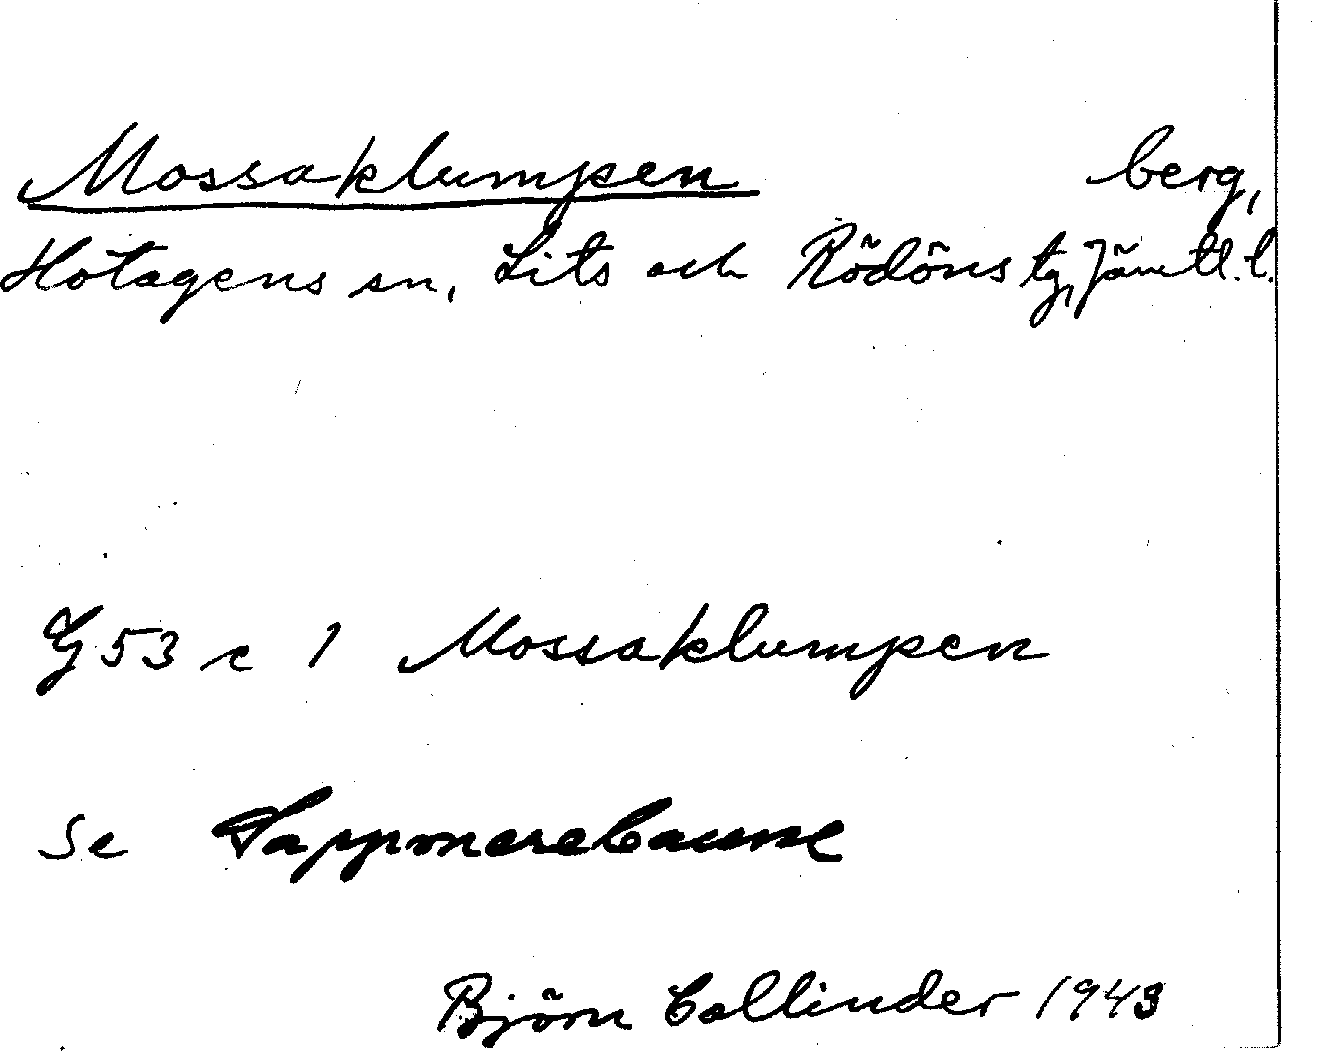 Mossaklumpen berg,
Hotagens sn, Lits och Rödöns tg, Jämtl. l.
G 53 c 1 Mossaklumpen
Se
Björn Collinder 1943